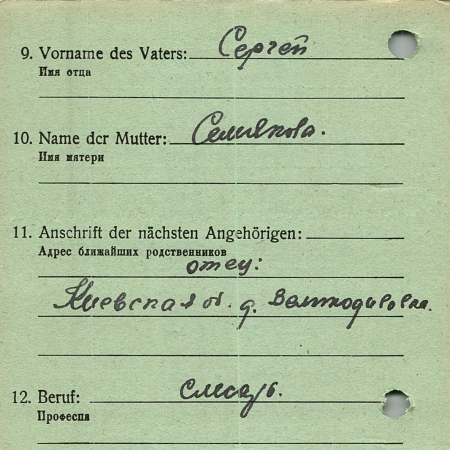 9. Vorname des Vaters: Сергей
Имя отца
10. Name der Mutter: Семякова.
Имя матери
11. Anschrift der nächsten Angehörigen:
Адрес ближайших родственников
отец:
Киевская об. д.
12. Beruf: слесарь.
Професия